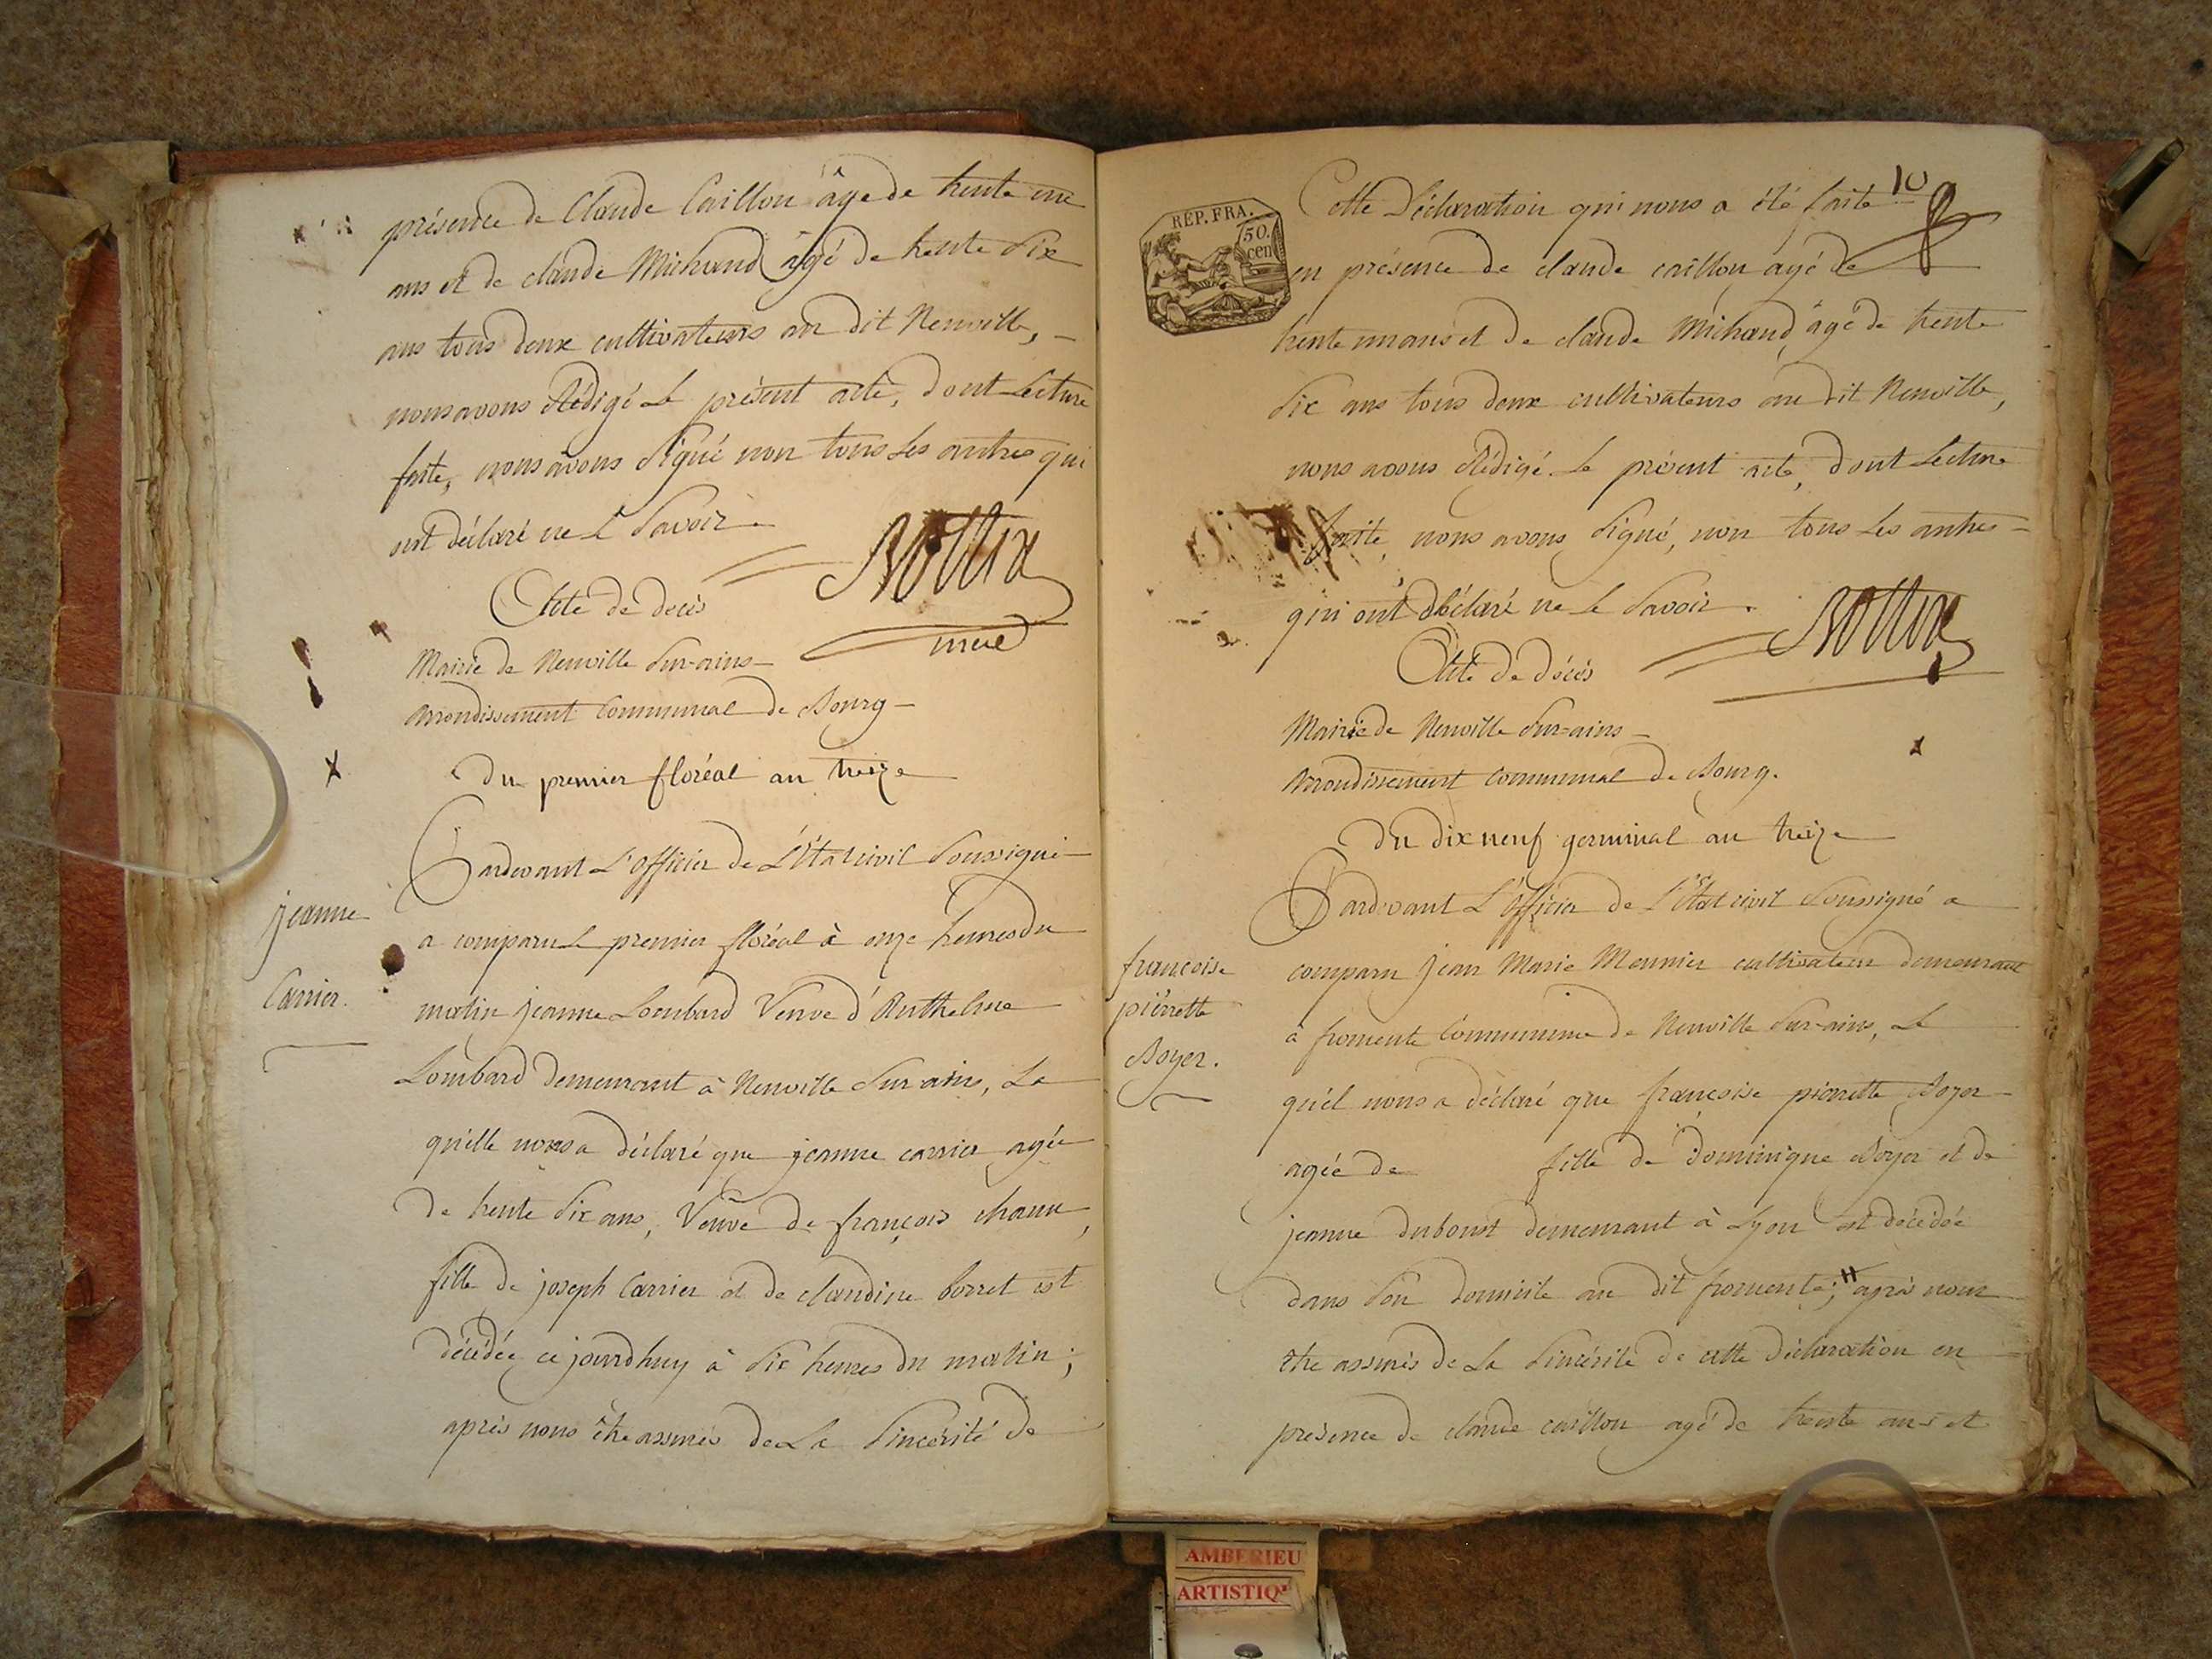 présence de Claude Caillon âge de trente un
ans et de claude Michaud âgé de trente Six
ans tous deux cultivateurs au dit Neuville, -
nous avons Rédigé Le présent acte, dont Lecture
faite, nous avons Signé non tous Les autres qui
ont déclaré ne L Savoir.
Acte de decès
Mairie de Neuville Sur-ains -
Arrondissement Communal de Bourg -
Du premier floréal an treize
Pardevant L'officier de L'État civil Soussigné
jeanne
Carrier.
a comparu L premier floréal à onze heures du
matin jeanne Lombard Veuve d'Anthelme
Lombard demeurant à Neuville Sur ains, La
qu'elle nous a déclaré que jeanne carrier agée
de trente Six ans, Veuve de françois
fille de joseph Carrier et de claudine borret est
décédée ce jourdhuy à Six heures du matin;
après nous être assurés de La Sincérité de
10
REP. FRA.
50.
cen
Cette Déclaration qui nous a été faite
en présence de claude caillon agé de
trente un ans et de claude Michaud, âgé de trente
Six ans tous deux cultivateurs au dit Neuville,
nous avons Rédigé Le présent acte, dont Lecture
faite, nous avons Signé, non tous Les autres -
qui ont déclaré ne Le Savoir.
Acte de décès
Mairie de Neuville Sur-ains -
Arrondissement communal de Bourg.
Du dix neuf germinal an treize
Pardevant L'officier de L'État civil Soussigné a
françoise
pierrette
Boyer.
comparu jean Marie Meunier cultivateur demeurant
à fromente Commune de Neuville Sur-ains, Le
quel nous a déclaré que françoise pierrette Boyer
agée de fille de Dominique Boyer et de
jeanne demeurant à Lyon est décédée
dans Son domicile au dit fromente; " après nous
être assurés de La Sincérité de cette Déclaration en
présence de claude caillon agé de trente ans et
AMBERIEU
ARTISTIQ